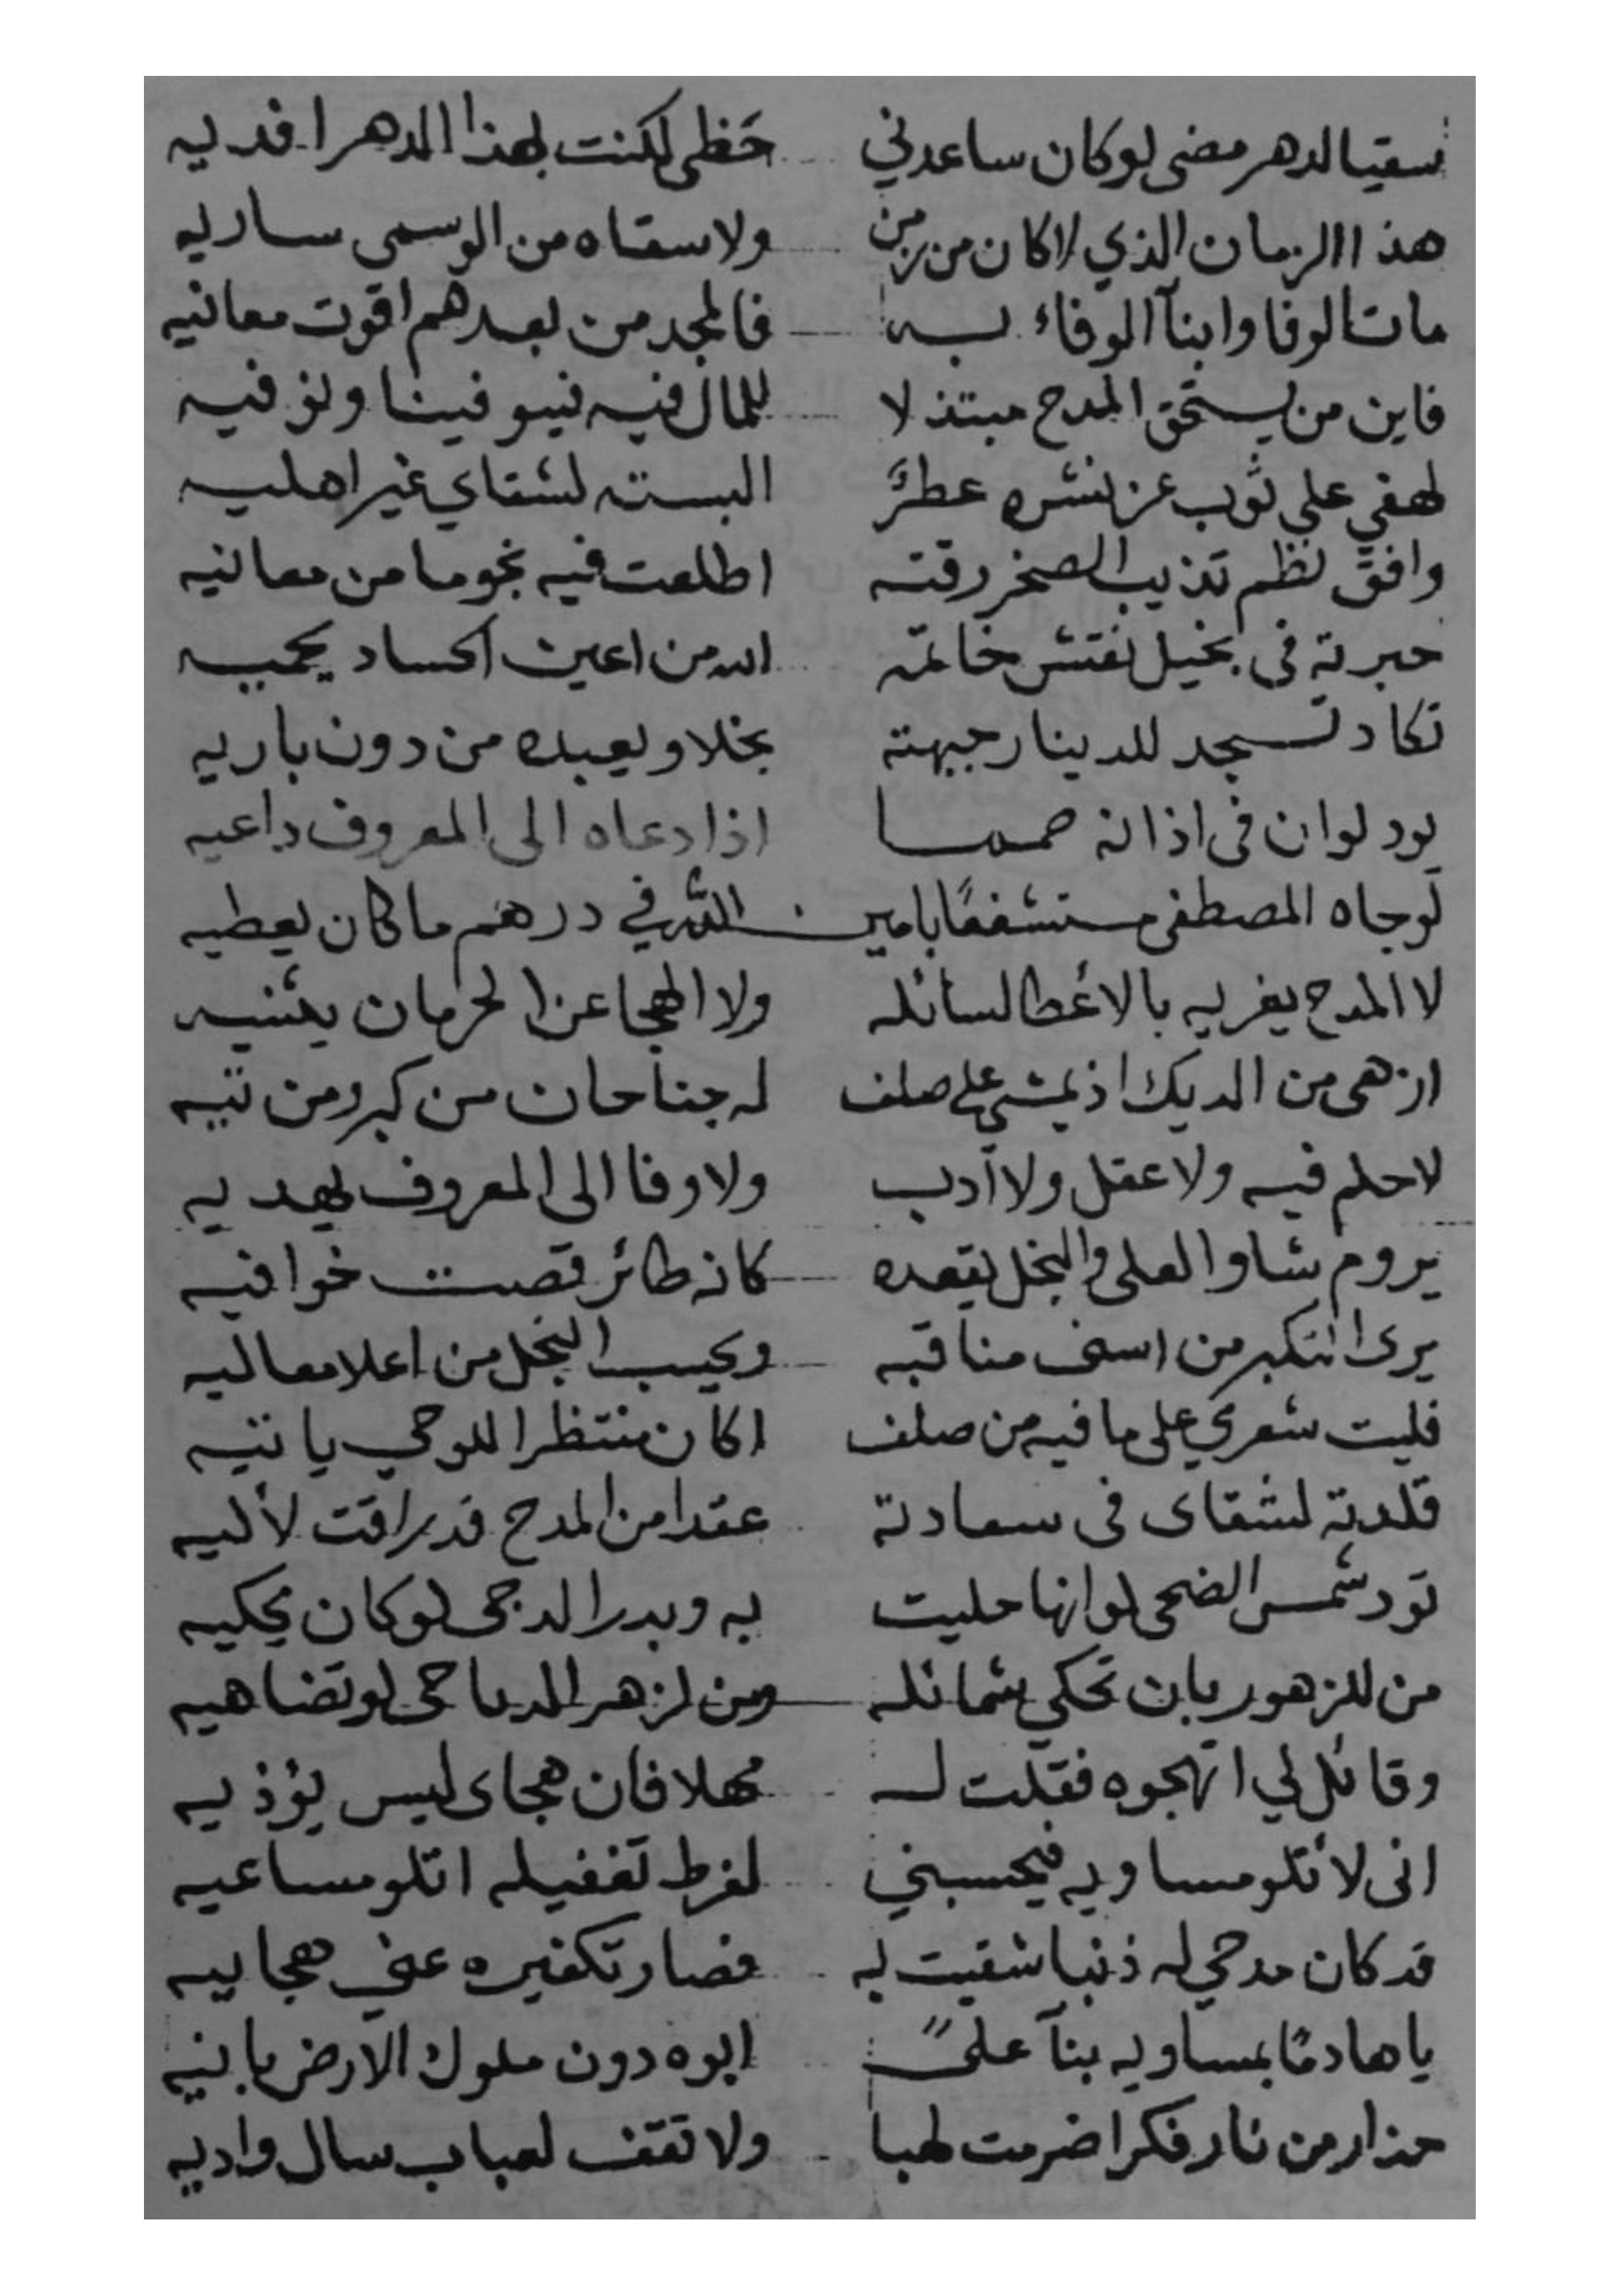 سقيا لدهر مضى لو كان ساعدني حَظى لكنت لهذا الدهر افديه
هذا الزمان الذي لا كان من زمن ولا سقاه من الوسمى ساريه
مات الوفا وابنآ الوفاء به فالمجد من بعدهم اقوت معانيه
فاين من يستحق المدح مبتذلا للمال فيه فينا
لهفي على ثوب عز نشره عطرً البسته لشقاي غير اهليه
وافق نظم تذيب الصخر رقته اطلعت فيه نجوما من معانيه
حبرته فى بخيل نقش خاتمه الله من اعين الحساد يحميه
تكاد تسجد للدينار جبهته بخلا ويعبده من دون باريه
يود لو ان فى اذانه صمما اذا دعاه الى المعروف داعيه
لو جاه المصطفى مستشفعًا بامين الله في درهم ما كان يعطيه
لا المدح يغريه بالاعطا لسائله ولا الهجا عن الحرمان يثنيه
ازهى من الديك اذ يمشي على صلف له جناحان من كبر ومن تيه
لا حلم فيه ولا عقل ولا أدب ولا وفا الى المعروف يهديه
يروم شاو العلى والبخل يقعده كانه طائر قصت خوافيه
يرى التكبر من اسنى مناقبه ويحسب البخل من اعلا معاليه
فليت شعري على ما فيه من صلف اكان منتظرا للوحي ياتيه
قلدته لشقاى فى سعادته عقدا من المدح قد راقت لأليه
تود شمس الضحى لو انها حليت به وبدر الدجى لو كان يحكيه
من للزهور بان تحكي شمائله ومن لزهر الدياجى لو تضاهيه
وقائل لي اتهجوه فقلت له مهلا فان هجاى ليس يؤذيه
انى لأتلو مساويه فيحسبني لفرط تغفيله اتلو مساعيه
قد كان مدحي له ذنبا شقيت به فصار تكفيره عني هجاييه
يا هادمًا بمساويه بنآ علىً ابوه دون ملوك الارض بانيه
حذار من نار فكر اضرمت لهبا ولا تقف لعباب سال واديه